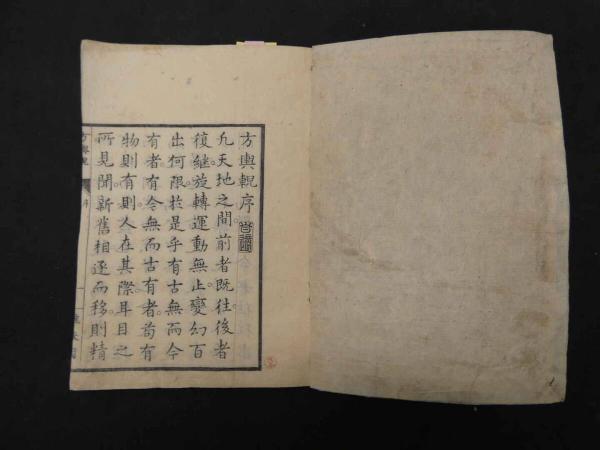 方輿輗序
凡天地之間前者既往後者
復繼旋轉運動無止變幻百
出何限於是乎有古無而今
有者有今無而古有者苟有
物則有則人在其際耳目之
所見聞新舊相逐而移則精
方輿輗 序